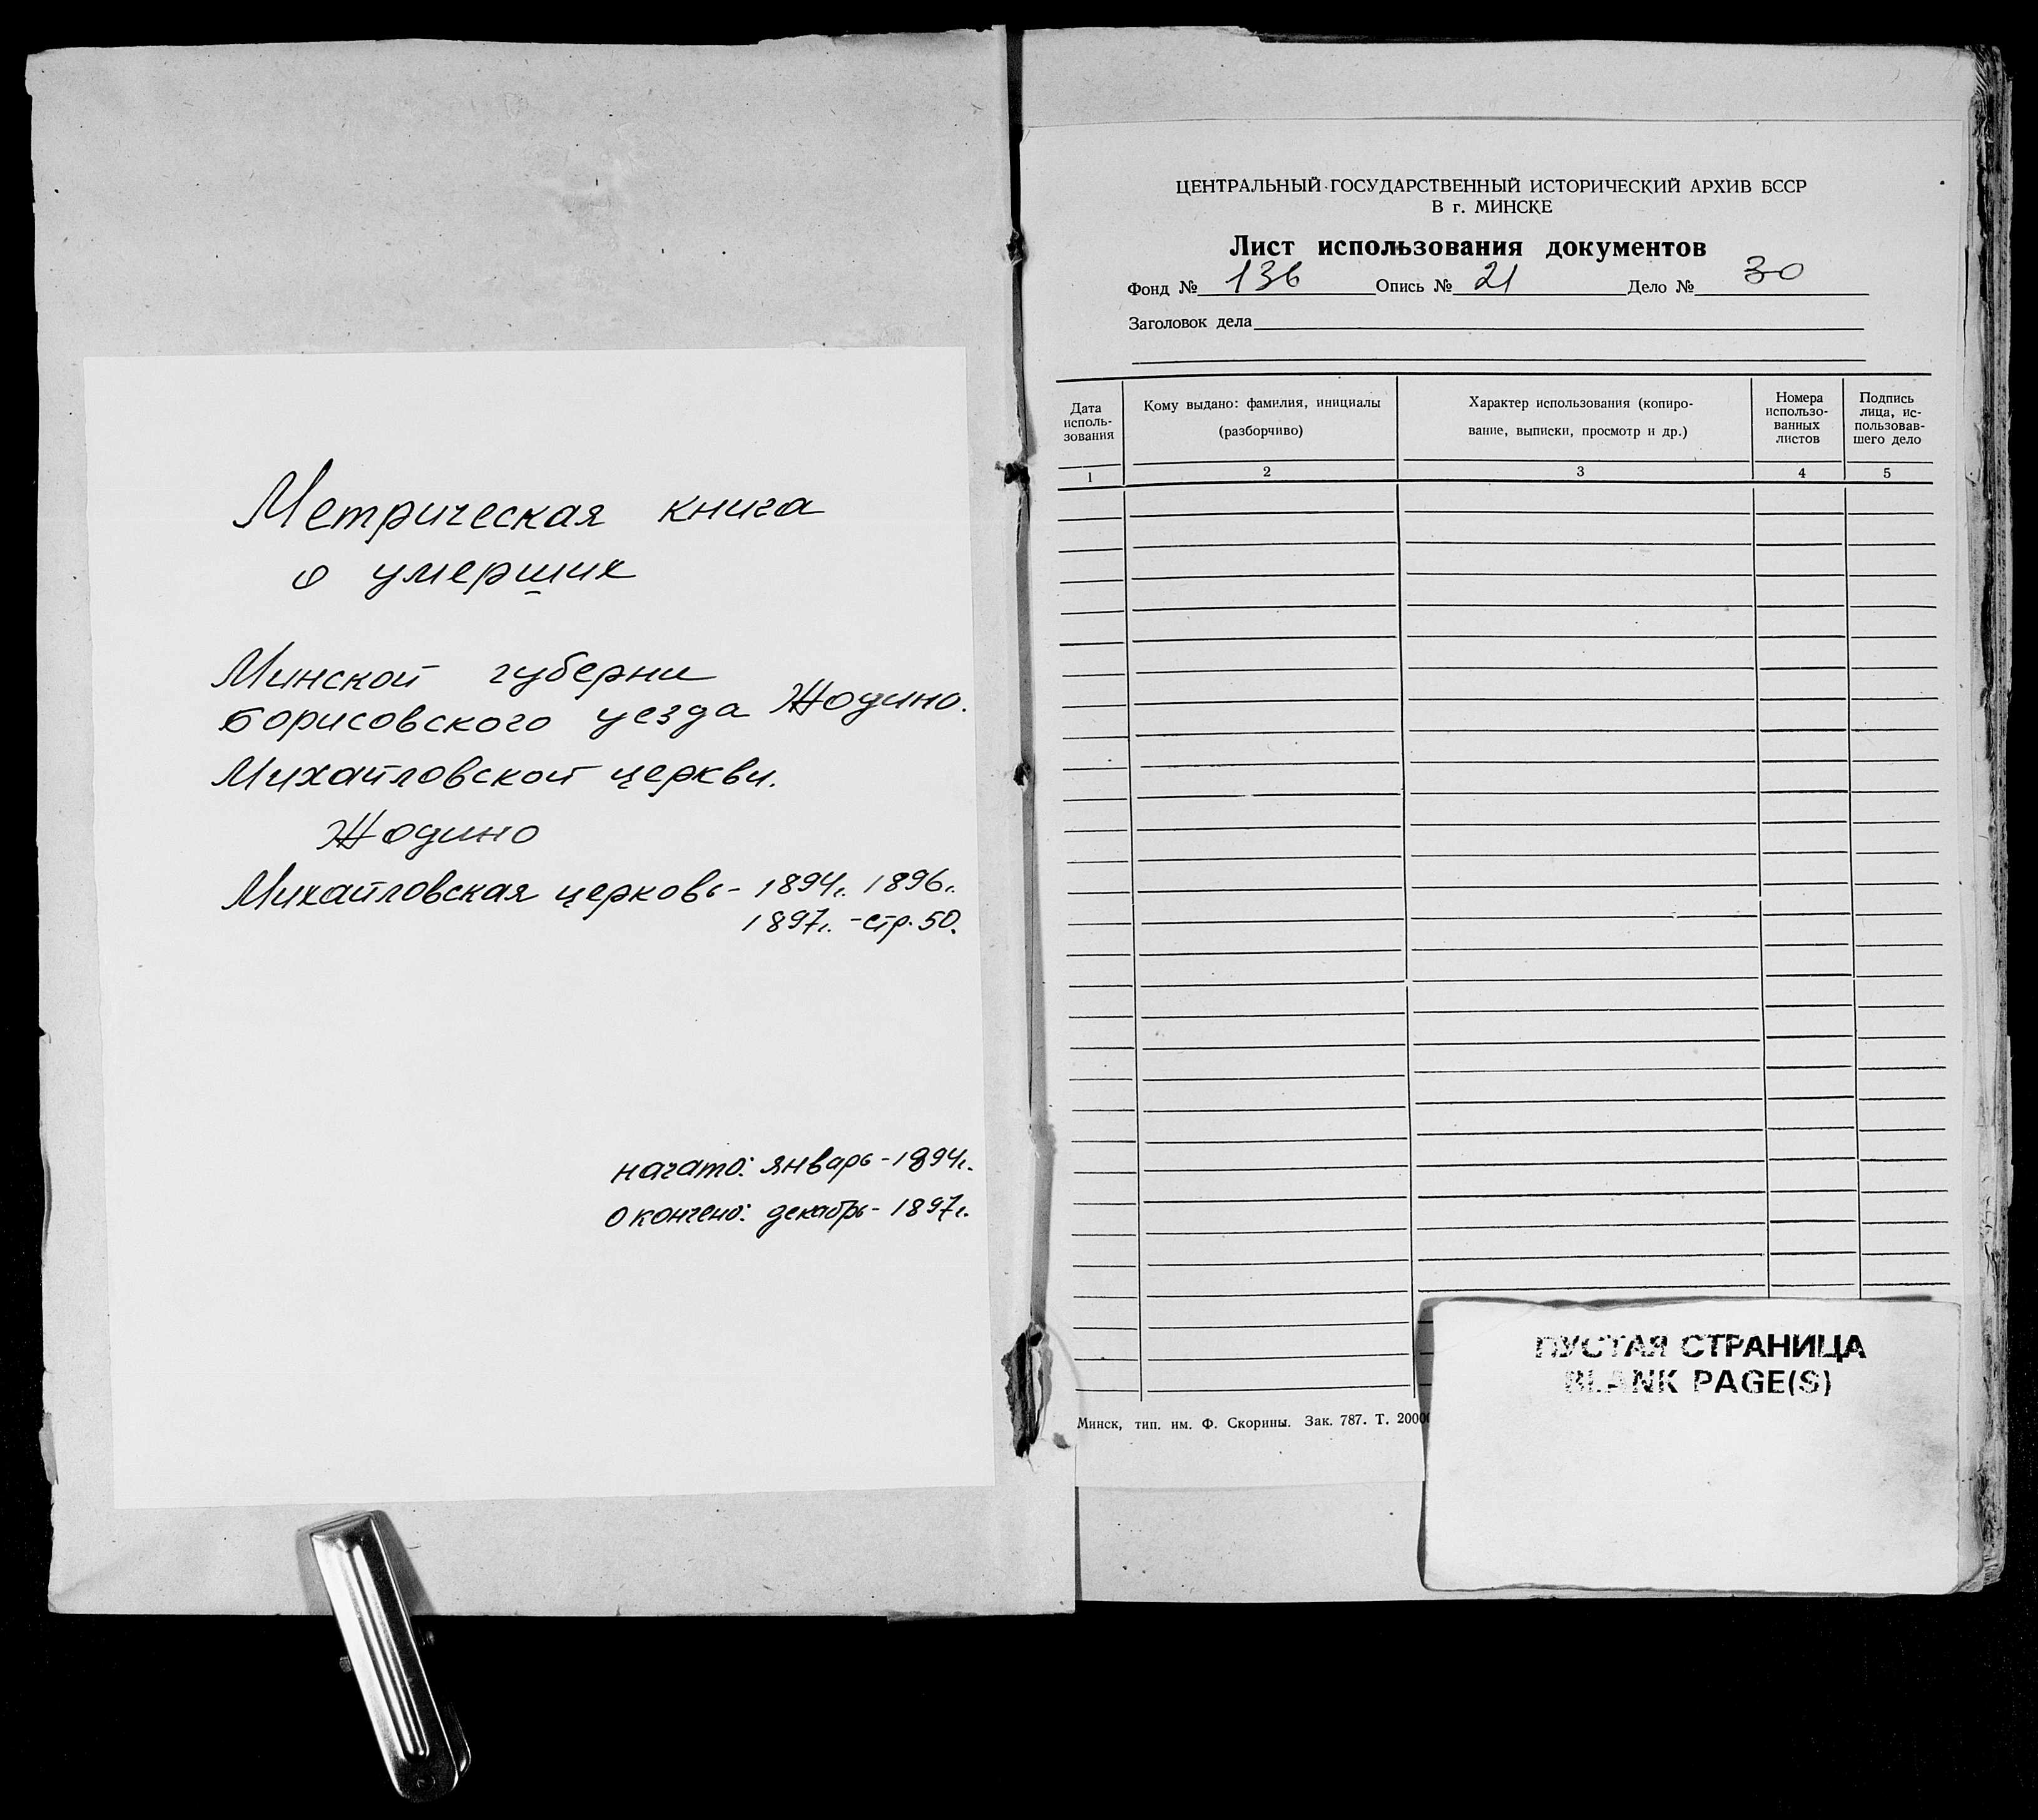 Метрическая книга
о умерших
Минской губерни
Борисовского уезда Жодино.
Михайловской церкви.
Жодино
Михайловская церковь - 1894г. 1896г.
1897г. - стр. 50.
начато: январь - 1894г.
окончено: декабрь - 1897г.
ЦЕНТРАЛЬНЫЙ ГОСУДАРСТВЕННЫЙ ИСТОРИЧЕСКИЙ АРХИВ БССР
В г. МИНСКЕ
Лист использования документов
Фонд № 136 Опись № 21 Дело № 30
Заголовок дела
Дата
исполь-
зования
Кому выдано: фамилия, инициалы
(разборчиво)
Характер использования (копиро-
вание, выписки, просмотр и др.)
Номера
использо-
ванных
листов
Подпись
лица, ис-
пользовав-
шего дело
1 2 3 4 5
Минск, тип. им. Ф. Скорины. Зак. 787. Т. 2000
ПУСТАЯ СТРАНИЦА
BLANK PAGE(S)